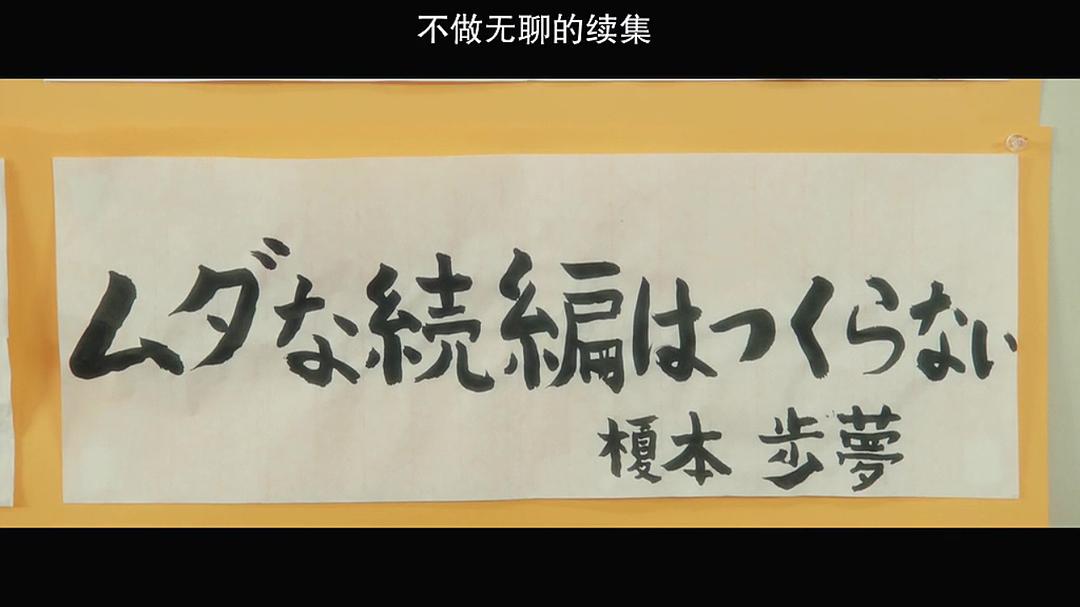 不做无聊的续集
ムダな続編はつくらない
榎本 歩夢